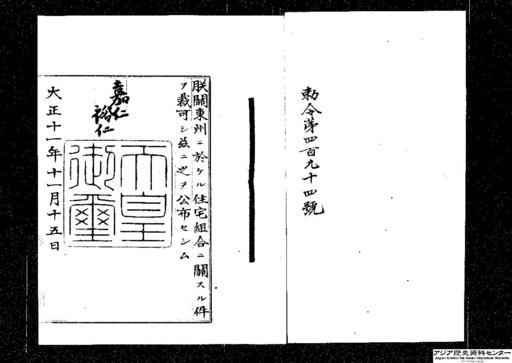 勅令第四百九十四號
朕關東州ニ於ケル住宅組合ニ關スル件
ヲ裁可シ茲ニ之ヲ公布セシム
嘉仁
裕仁
天皇御璽
大正十一年十一月十五日
アジア歴史資料センター
Japan Center for Asian Historical Records